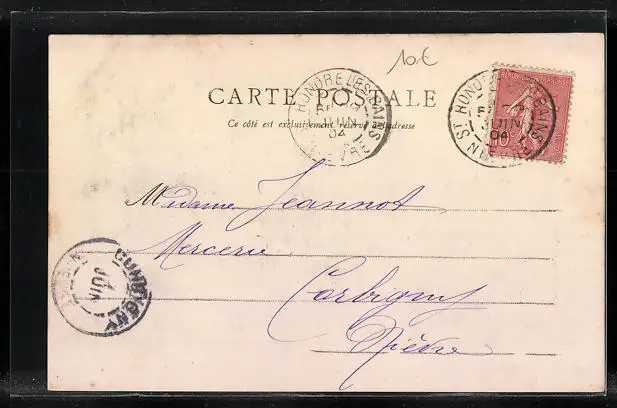 10€
CARTE POSTALE
Ce côté est exclusivement réservé à l'adresse
ST HONORE LES BAINS
JUIN
04
NIEVRE
REPUBLIQUE FRANÇAISE
10
ST HONORE LES BAINS
JUIN
04
NIEVRE
Madame Jeannot
Mercerie
Corbigny
Nièvre
CORBIGNY
JUIN